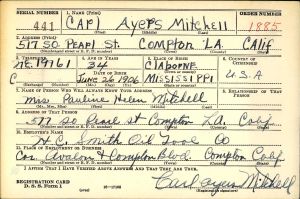 SERIAL NUMBER 1. NAME (Print) ORDER NUMBER
441 CARL AYERS MITCHELL 1885
2. ADDRESS (Print)
517 SO. PEARL ST. COMPTON LA. CALIF
3. TELEPHONE 4. AGE IN YEARS 5. PLACE OF BIRTH 6. COUNTRY OF CITIZENSHIP
19761 34 CLAIBORNE U.S.A
DATE OF BIRTH
JUNE 26 1906 MISSISSIPPI
7. NAME OF PERSON WHO WILL ALWAYS KNOW YOUR ADDRESS 8. RELATIONSHIP OF THAT PERSON
Mrs Pauline Helen Mitchell
9. ADDRESS OF THAT PERSON
517 So Pearl St Compton L.A. Calif
10. EMPLOYER'S NAME
H.C. Smith Oil Tool Co
11. PLACE OF EMPLOYMENT OR BUSINESS
Cor. Avalon & Compton Blvd. Compton Calif
I AFFIRM THAT I HAVE VERIFIED ABOVE ANSWERS AND THAT THEY ARE TRUE.
REGISTRATION CARD
D. S. S. Form 1
Carl Ayers Mitchell